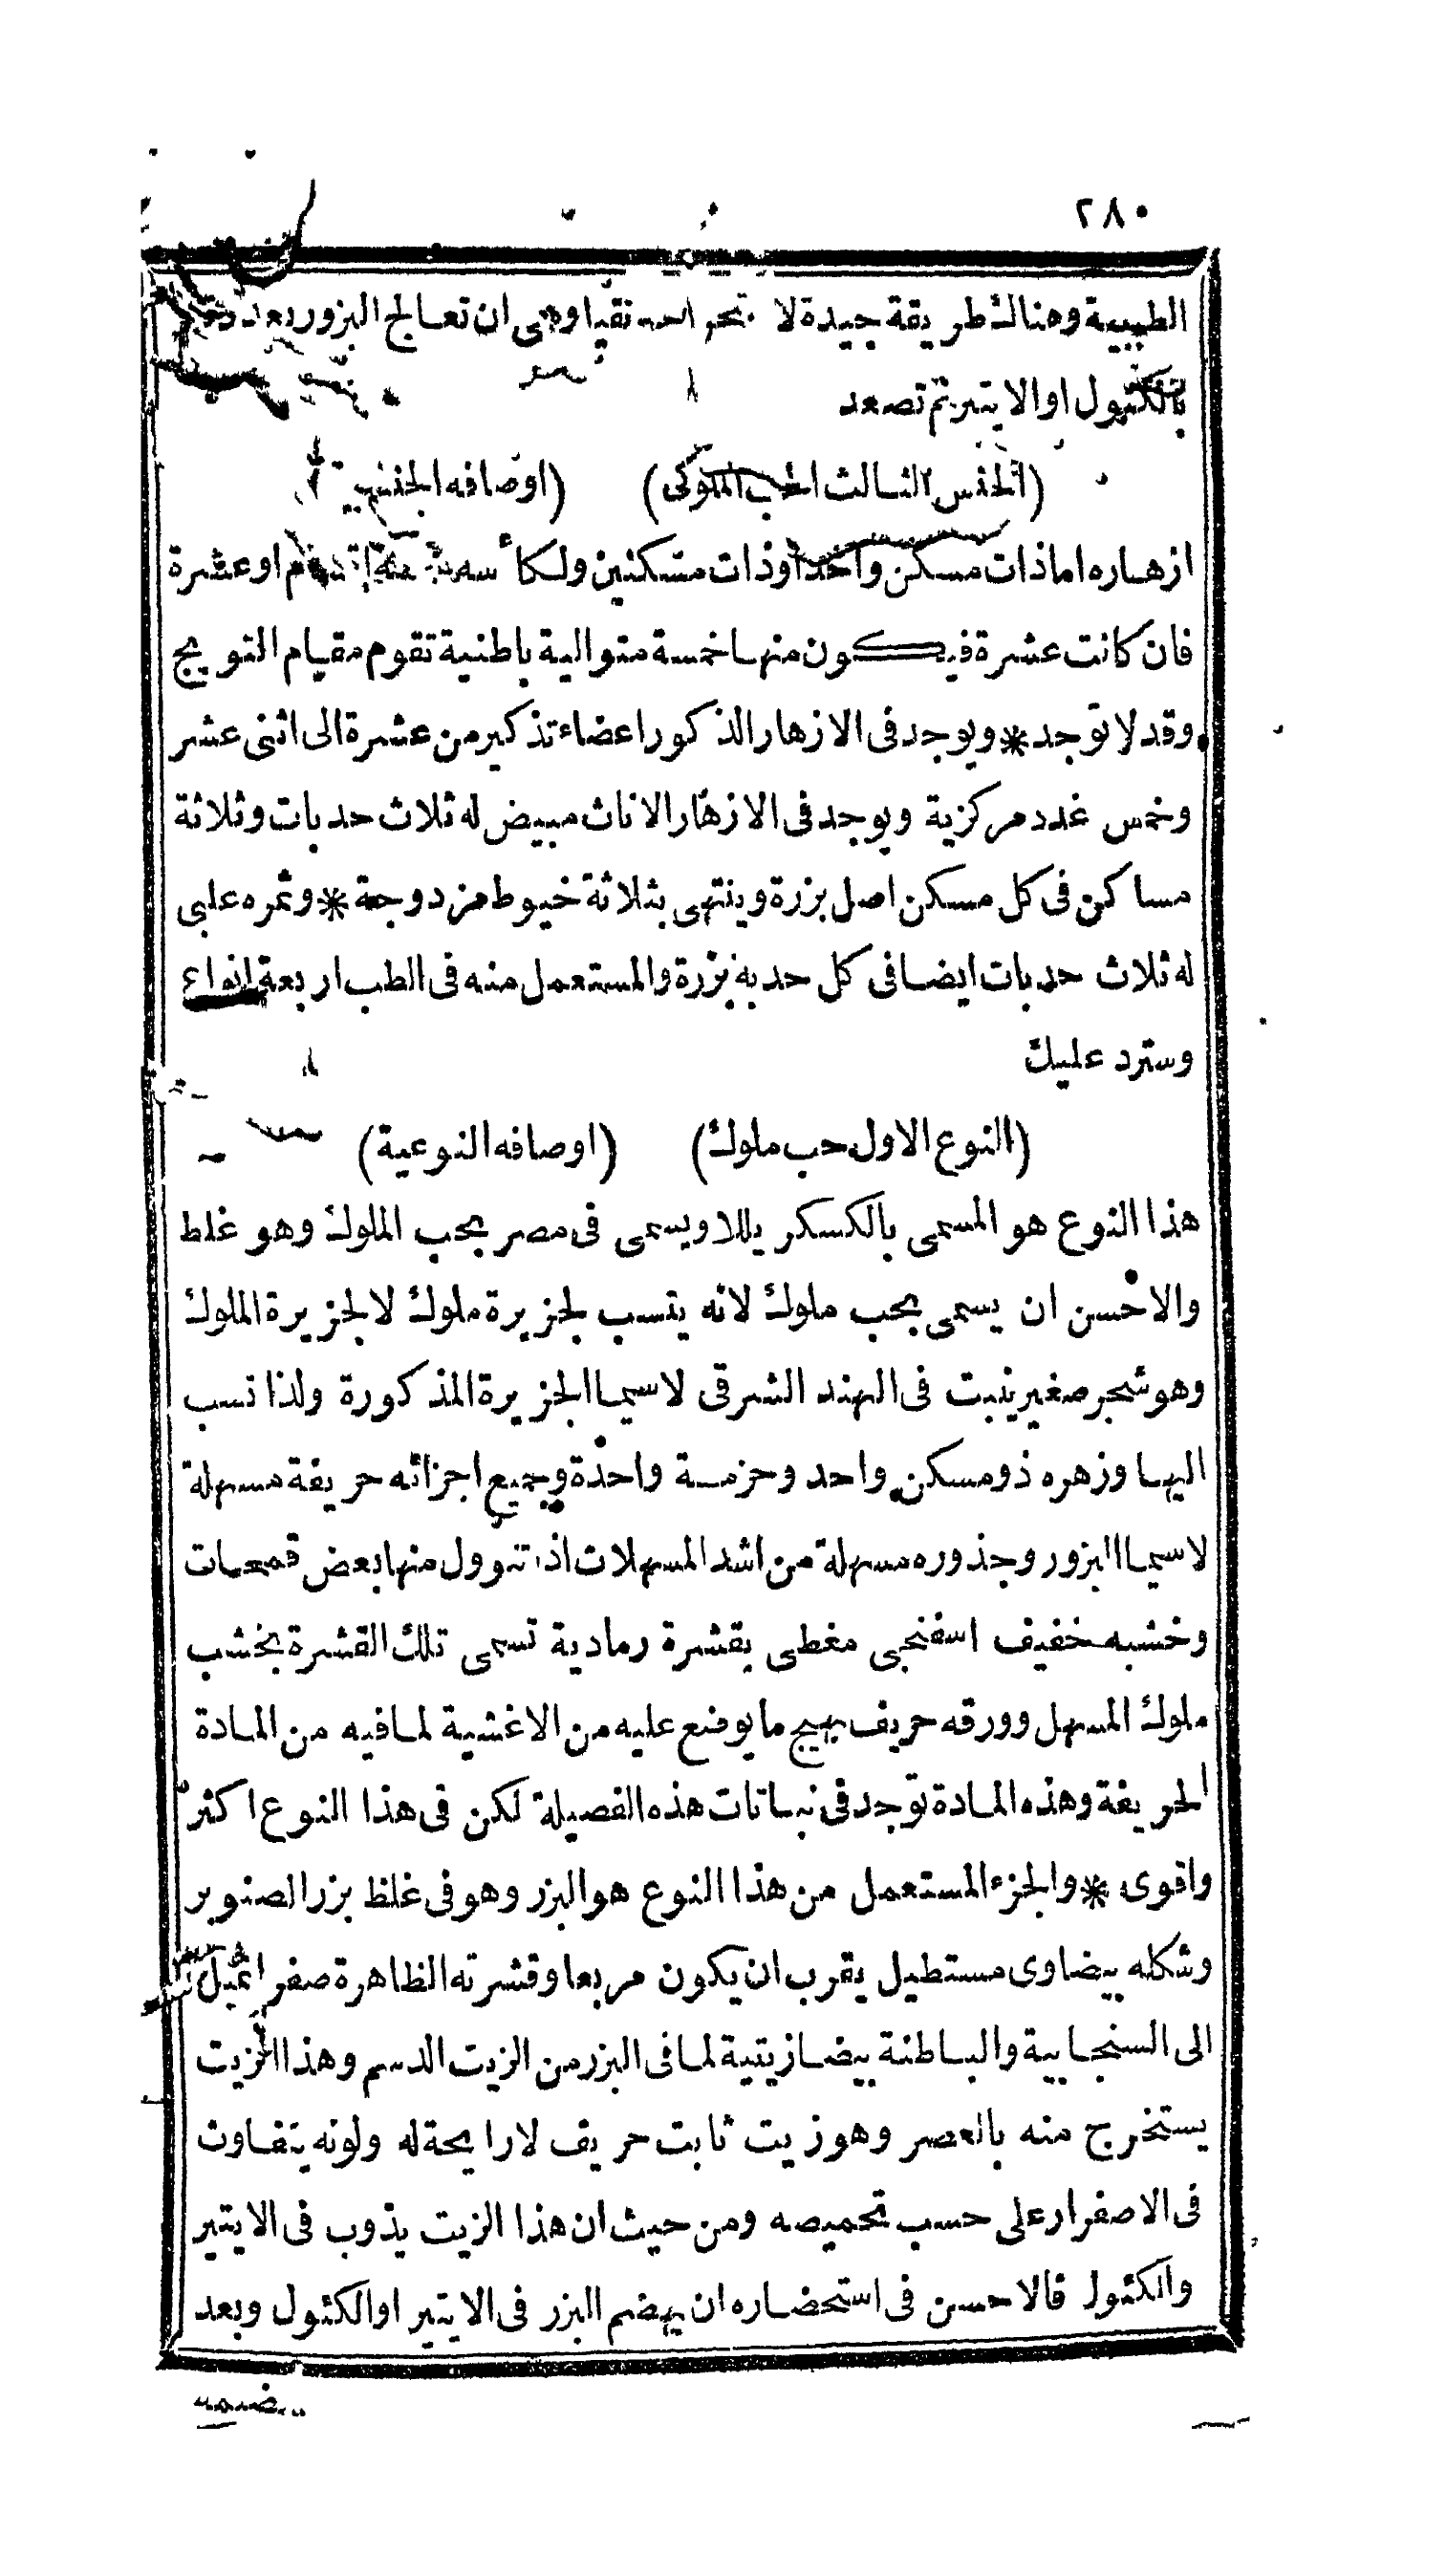 ٢٨٠
الطبيبة وهنالك طريقة جيدة لا نقيا وهى ان تعالج البزور بعد
بالكثول او الايتير ثم تصعد
(الجنس الثالث الحب الملوكى) (اوصافه الجنسية)
ازهاره اما ذات مسكن واحد او ذات مسكنين ولكأسه او عشرة
فان كانت عشرة فيكون منها خمسة متوالية باطنية تقوم مقام التويج
وقد لا توجد * ويوجد فى الازهار الذكور اعضاء تذكير من عشرة الى اثنى عشر
وخمس غدد مركزية ويوجد فى الازهار الاناث مبيض له ثلاث حدبات وثلاثة
مساكن فى كل مسكن اصل بزرة وينتهى بثلاثة خيوط مزدوجة * وثمره علبى
له ثلاث حدبات ايضا فى كل حدبة بزرة والمستعمل منه فى الطب اربعة انواع
وسترد عليك
(النوع الاول حب ملوك) (اوصافه النوعية)
هذا النوع هو المسمى بالكسكر يللا ويسمى فى مصر بحب الملوك وهو غلط
والاحسن ان يسمى بحب ملوك لانه ينسب لجزيرة ملوك لا لجزيرة الملوك
وهو شجر صغير ينبت فى الهند الشرقى لاسيما الجزيرة المذكورة ولذا نسب
اليها وزهره ذو مسكن واحد وحزمة واحدة وجميع اجزائه حريفة مسهلة
لاسيما البزور وجذوره مسهلة من اشد المسهلات اذا تنوول منها بعض قمحات
وخشبه خفيف اسفنجى مغطى بقشرة رمادية تسمى تلك القشرة بخشب
ملوك المسهل وورقه حريف يهيج ما يوضع عليه من الاغشية لما فيه من المادة
الحريفة وهذه المادة توجد فى نباتات هذه الفصيلة لكن فى هذا النوع اكثر
واقوى * والجزء المستعمل من هذا النوع هو البزر وهو فى غلظ بزر الصنوبر
وشكله بيضاوى مستطيل يقرب ان يكون مربعا وقشرته الظاهرة صفرا تميل
الى السنجابية والباطنة بيضا زيتية لما فى البزر من الزيت الدسم وهذا الزيت
يستخرج منه بالعصر وهو زيت ثابت حريف لا رايحة له ولونه يتفاوت
فى الاصفرار على حسب تحميصه ومن حيث ان هذا الزيت يذوب فى الايتير
والكثول فالاحسن فى استحضاره ان يهضم البزر فى الايتير او الكثول وبعد